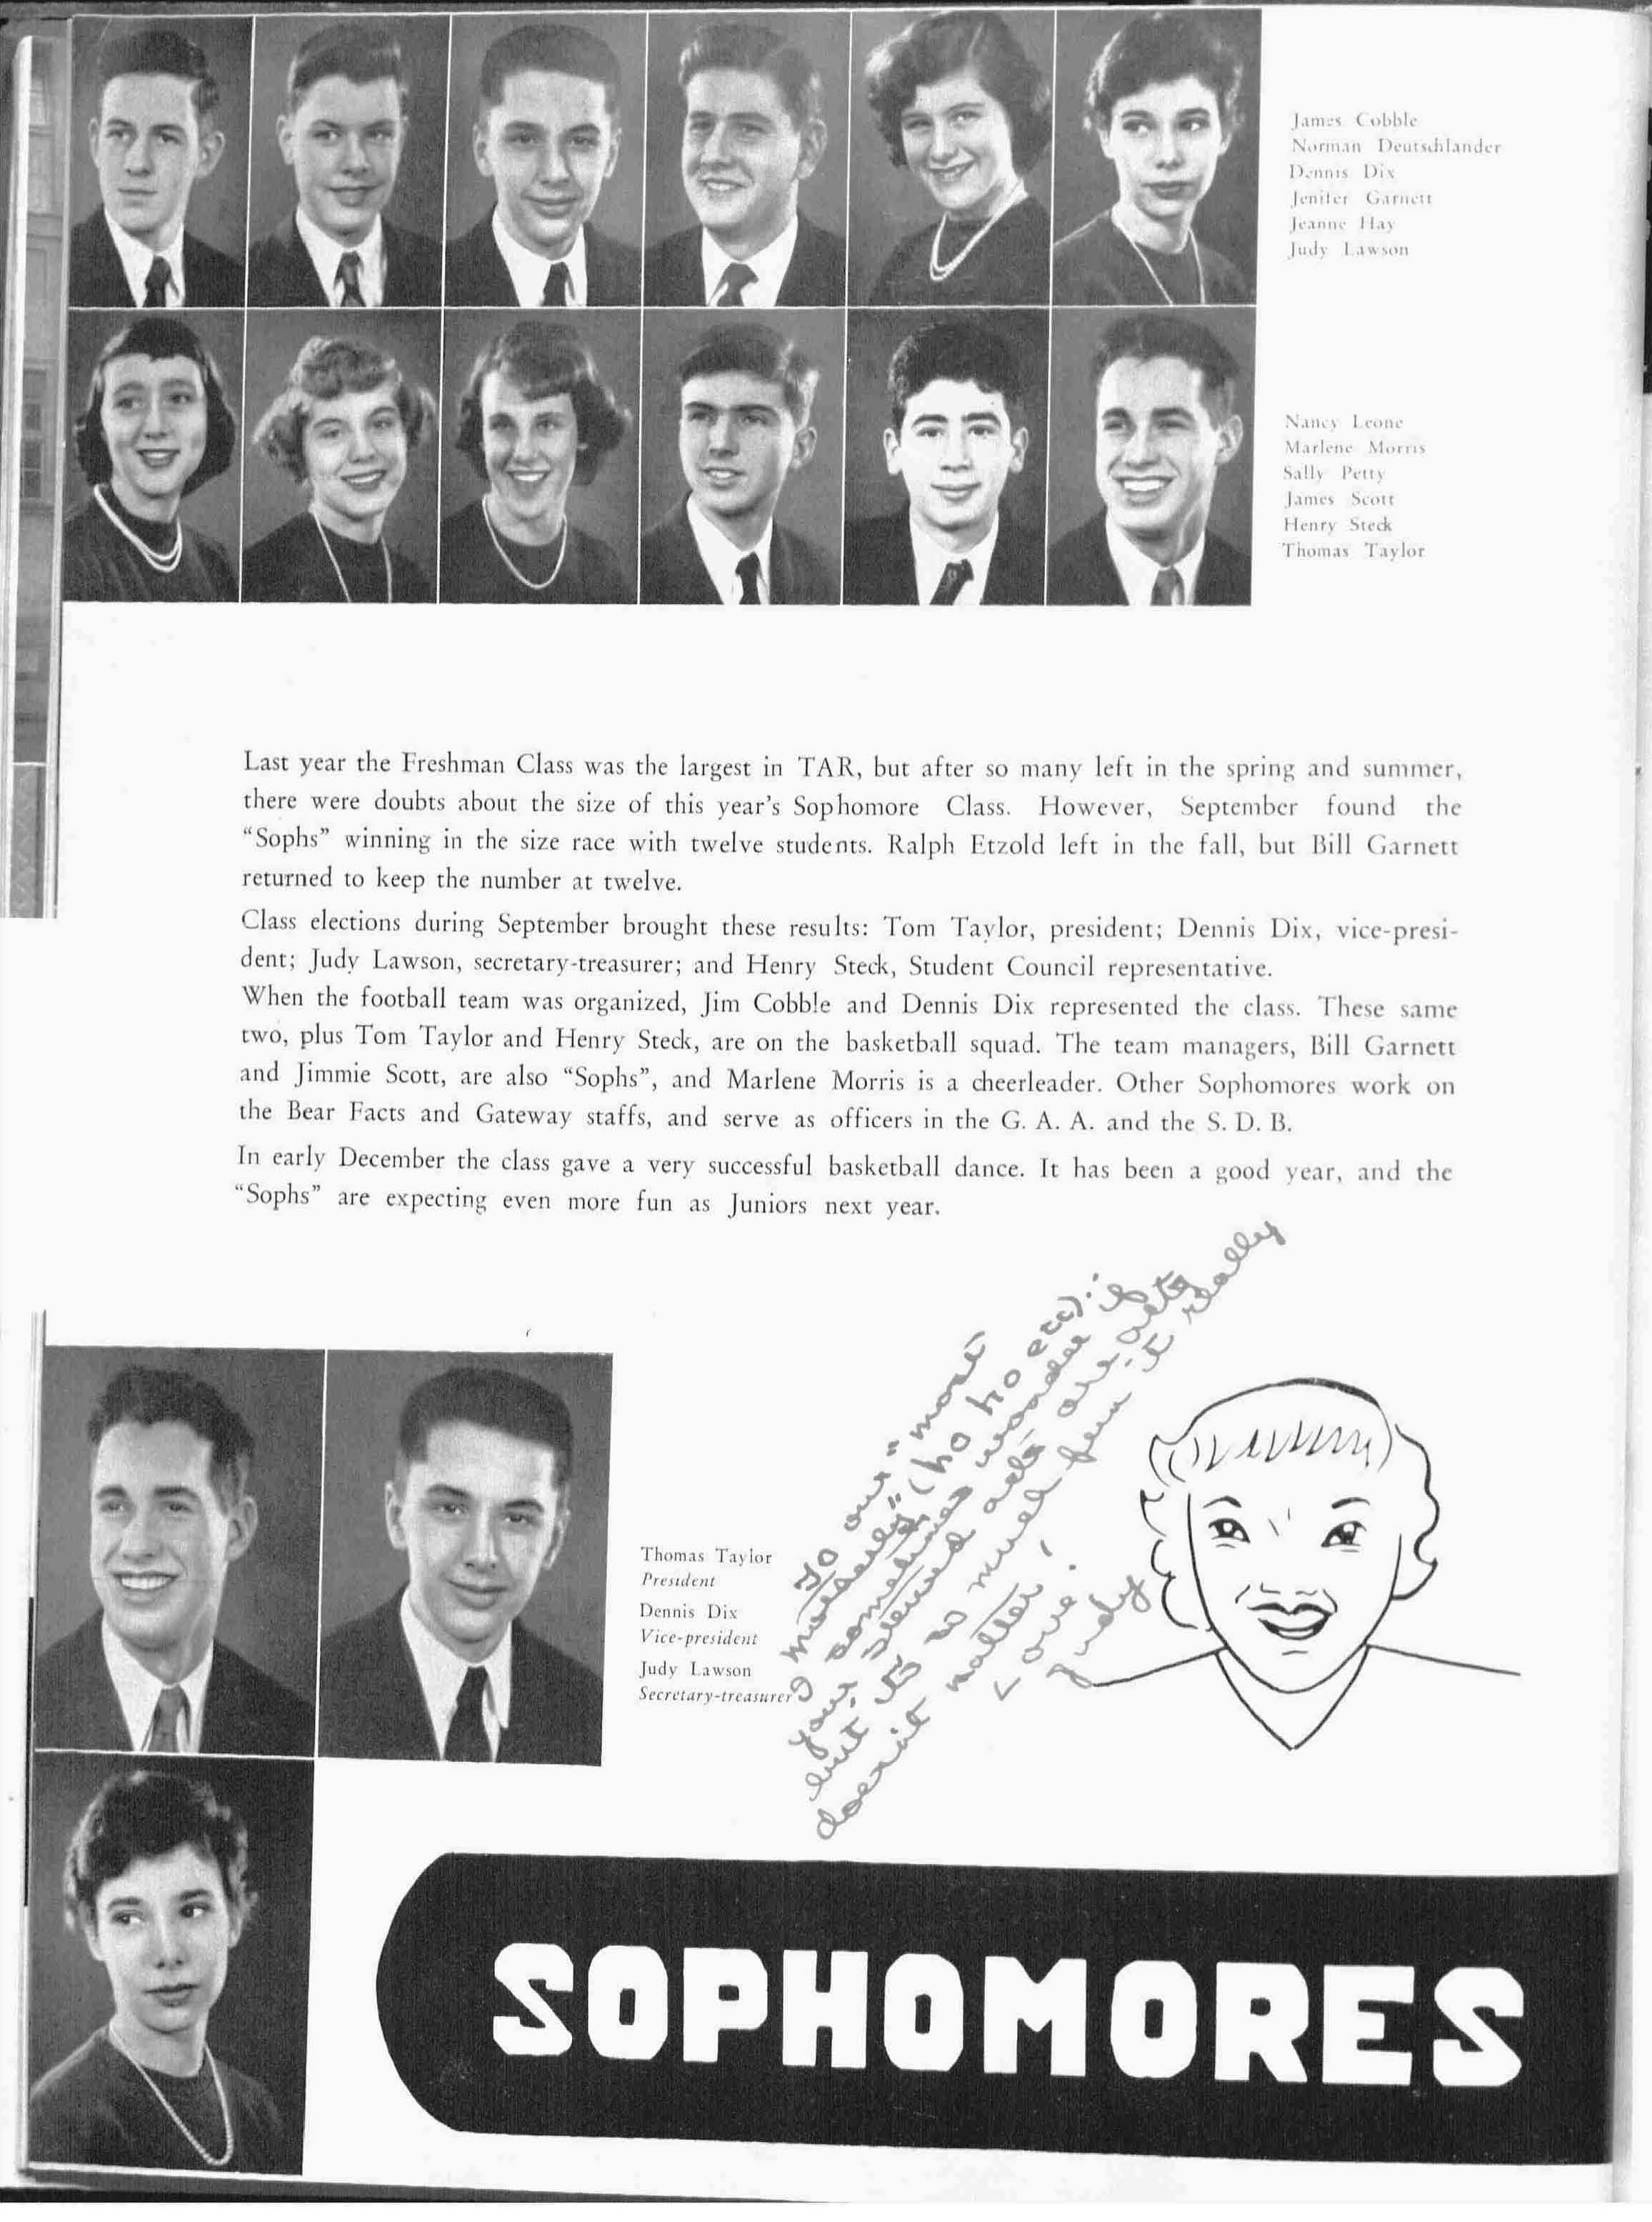 James Cobble
Norman Deutschlander
Dennis Dix
Jenifer Garnett
Jeanne Hay
Judy Lawson
Nancy Leone
Marlene Morris
Sally Petty
James Scott
Henry Steck
Thomas Taylor
Last year the Freshman Class was the largest in TAR, but after so many left in the spring and summer,
there were doubts about the size of this year's Sophomore Class. However, September found the
"Sophs" winning in the size race with twelve students. Ralph Etzold left in the fall, but Bill Garnett
returned to keep the number at twelve.
Class elections during September brought these results: Tom Taylor, president; Dennis Dix, vice-presi-
dent; Judy Lawson, secretary-treasurer; and Henry Steck, Student Council representative.
When the football team was organized, Jim Cobble and Dennis Dix represented the class. These same
two, plus Tom Taylor and Henry Steck, are on the basketball squad. The team managers, Bill Garnett
and Jimmie Scott, are also "Sophs", and Marlene Morris is a cheerleader. Other Sophomores work on
the Bear Facts and Gateway staffs, and serve as officers in the G. A. A. and the S. D. B.
In early December the class gave a very successful basketball dance. It has been a good year, and the
"Sophs" are expecting even more fun as Juniors next year.
To our "most
" (ho ho ecc).
I sometimes wonder if
your silence acts are acts
but it's so much fun it really
doesn't matter!
Love,
Judy
Thomas Taylor
President
Dennis Dix
Vice-president
Judy Lawson
Secretary-treasurer
SOPHOMORES